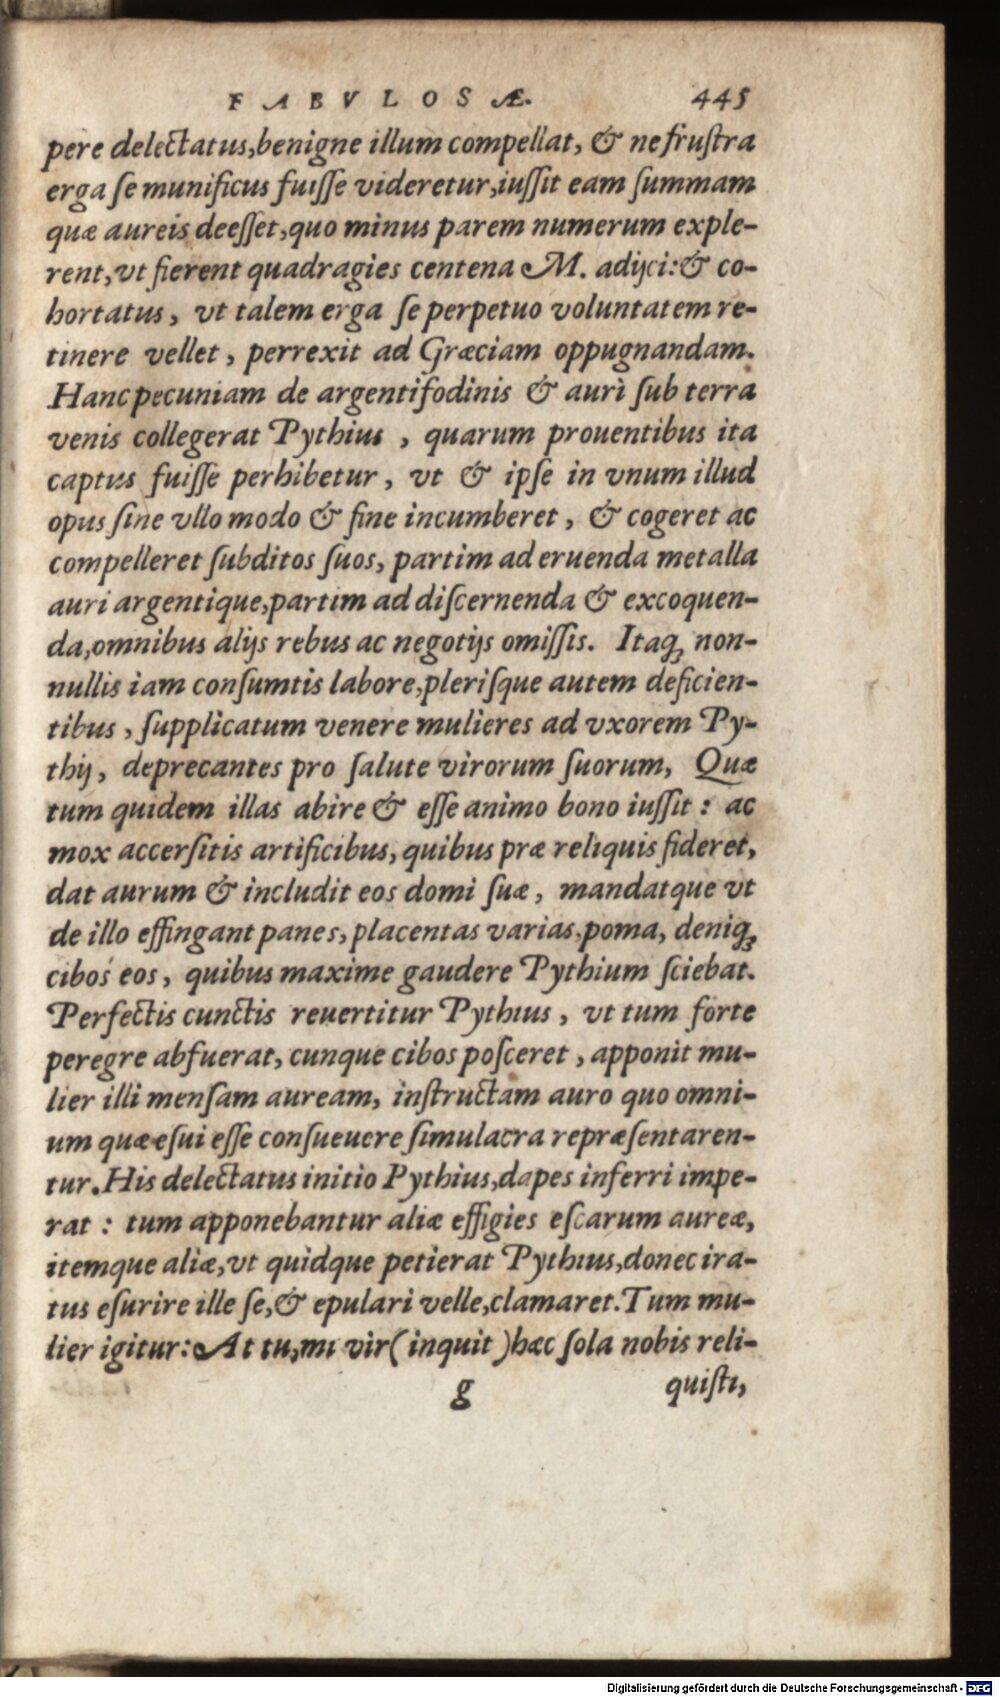 FABVLOSÆ. 445
pere delectatus,benigne illum compellat, & ne fruſtra
erga ſe munificus fuiſſe videretur,iuſſit eam ſummam
quæ aureis deeſſet,quo minus parem numerum exple-
rent,vt fierent quadragies centena M. adijci:& co-
hortatus, vt talem erga ſe perpetuo voluntatem re-
tinere vellet, perrexit ad Græciam oppugnandam.
Hanc pecuniam de argentifodinis & auri ſub terra
venis collegerat Pythius, quarum prouentibus ita
captus fuiſſe perhibetur, vt & ipſe in vnum illud
opus ſine vllo modo & fine incumberet, & cogeret ac
compelleret ſubditos ſuos, partim ad eruenda metalla
auri argentique,partim ad diſcernenda & excoquen-
da,omnibus alijs rebus ac negotijs omiſſis. Itaqꝫ non-
nullis iam conſumtis labore,pleriſque autem deficien-
tibus, ſupplicatum venere mulieres ad vxorem Py-
thij, deprecantes pro ſalute virorum ſuorum, Quæ
tum quidem illas abire & eſſe animo bono iuſſit: ac
mox accerſitis artificibus, quibus præ reliquis fideret,
dat aurum & includit eos domi ſuæ, mandatque vt
de illo effingant panes,placentas varias,poma, deniqꝫ
cibos eos, quibus maxime gaudere Pythium ſciebat.
Perfectis cunctis reuertitur Pythius, vt tum forte
peregre abfuerat, cunque cibos poſceret, apponit mu-
lier illi menſam auream, inſtructam auro quo omni-
um quæ eſui eſſe conſueuere ſimulacra repræſentaren-
tur. His delectatus initio Pythius,dapes inferri impe-
rat: tum apponebantur aliæ effigies eſcarum aureæ,
itemque aliæ,vt quidque petierat Pythius,donec ira-
tus eſurire ille ſe,& epulari velle,clamaret.Tum mu-
lier igitur: At tu,mi vir (inquit) hæc ſola nobis reli-
g quiſti,
Digitalisierung gefördert durch die Deutsche Forschungsgemeinschaft - DFG